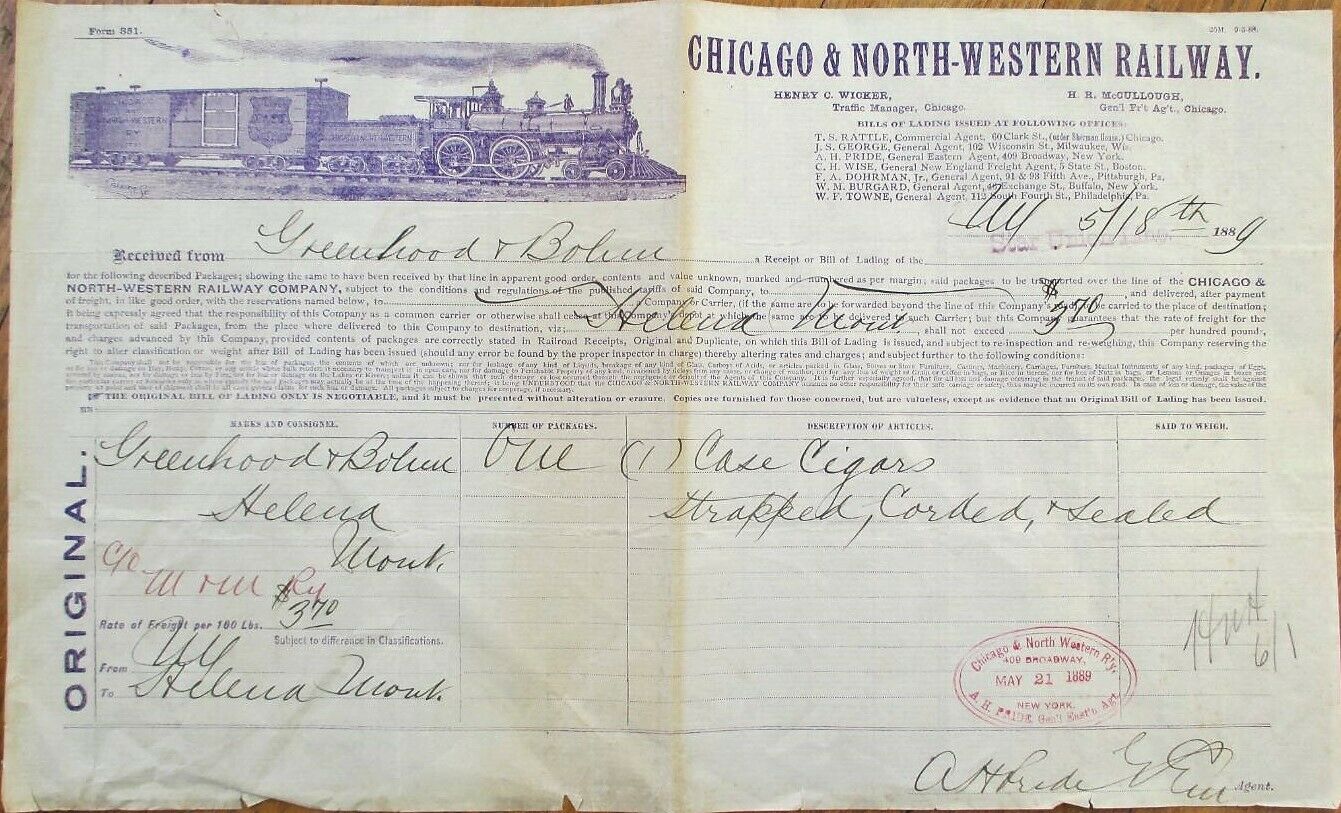 Form 881.
CHICAGO & NORTH-WESTERN RAILWAY.
HENRY C. WICKER,
Traffic Manager, Chicago.
H. R. McCULLOUGH,
Gen'l Fr't Ag't., Chicago.
BILLS OF LADING ISSUED AT FOLLOWING OFFICES:
T. S. RATTLE, Commercial Agent, 60 Clark St., (under Sherman House.) Chicago.
J. S. GEORGE, General Agent, 102 Wisconsin St., Milwaukee, Wis.
A. H. PRIDE, General Eastern Agent, 409 Broadway, New York.
C. H. WISE, General New England Freight Agent, 5 State St., Boston.
F. A. DOHRMAN, Jr., General Agent, 91 & 93 Fifth Ave., Pittsburgh, Pa.
W. M. BURGARD, General Agent, Exchange St., Buffalo, New York.
W. F. TOWNE, General Agent, 112 South Fourth St., Philadelphia, Pa.
NY 5/18th 1889
Star Union Line
Received from Greenhood & Bohm a Receipt or Bill of Lading of the
for the following described Packages; showing the same to have been received by that line in apparent good order, contents and value unknown, marked and numbered as per margin; said packages to be transported over the line of the CHICAGO &
NORTH-WESTERN RAILWAY COMPANY, subject to the conditions and regulations of the published tariffs of said Company, to , and delivered, after payment
of freight, in like good order, with the reservations named below, to a Company or Carrier, (if the same are to be forwarded beyond the line of this Company's road) to be carried to the place of destination;
it being expressly agreed that the responsibility of this Company as a common carrier or otherwise shall cease at this Company's depot at which the same are to be delivered to such Carrier; but this Company guarantees that the rate of freight for the
transportation of said Packages, from the place where delivered to this Company to destination, viz; Helena Mont , shall not exceed $3.70 per hundred pounds,
and charges advanced by this Company, provided contents of packages are correctly stated in Railroad Receipts, Original and Duplicate, on which this Bill of Lading is issued, and subject to re-inspection and re-weighing, this Company reserving the
right to alter classification or weight after Bill of Lading has been issued (should any error be found by the proper inspector in charge) thereby altering rates and charges; and subject further to the following conditions:
THE ORIGINAL BILL OF LADING ONLY IS NEGOTIABLE, and it must be presented without alteration or erasure. Copies are furnished for those concerned, but are valueless, except as evidence that an Original Bill of Lading has been issued.
MARKS AND CONSIGNEE. NUMBER OF PACKAGES. DESCRIPTION OF ARTICLES. SAID TO WEIGH.
ORIGINAL.
Greenhood & Bohm One (1) Case Cigars
Helena Strapped, Corded, & Sealed
Mont.
c/o
M & M Ry
$3.70
Rate of Freight per 100 Lbs.
Subject to difference in Classifications.
From NY
To Helena Mont.
6/1
Chicago & North Western R'y,
409 BROADWAY,
MAY 21 1889
NEW YORK.
A. H. PRIDE, Gen'l East'n Agt.
A H Pride
Agent.